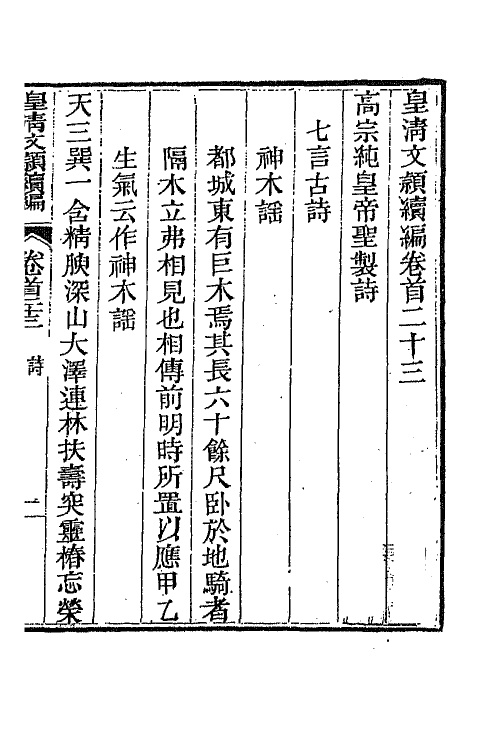 皇清文穎續編卷首二十三
高宗純皇帝聖製詩
七言古詩
神木謠
都城東有巨木焉其長六十餘尺卧於地騎者
隔木立弗相見也相傳前明時所置以應甲乙
生氣云作神木謠
天三巽一含精腴深山大澤連林扶壽突靈椿忘榮
皇清文穎續編
卷首二十三
詩